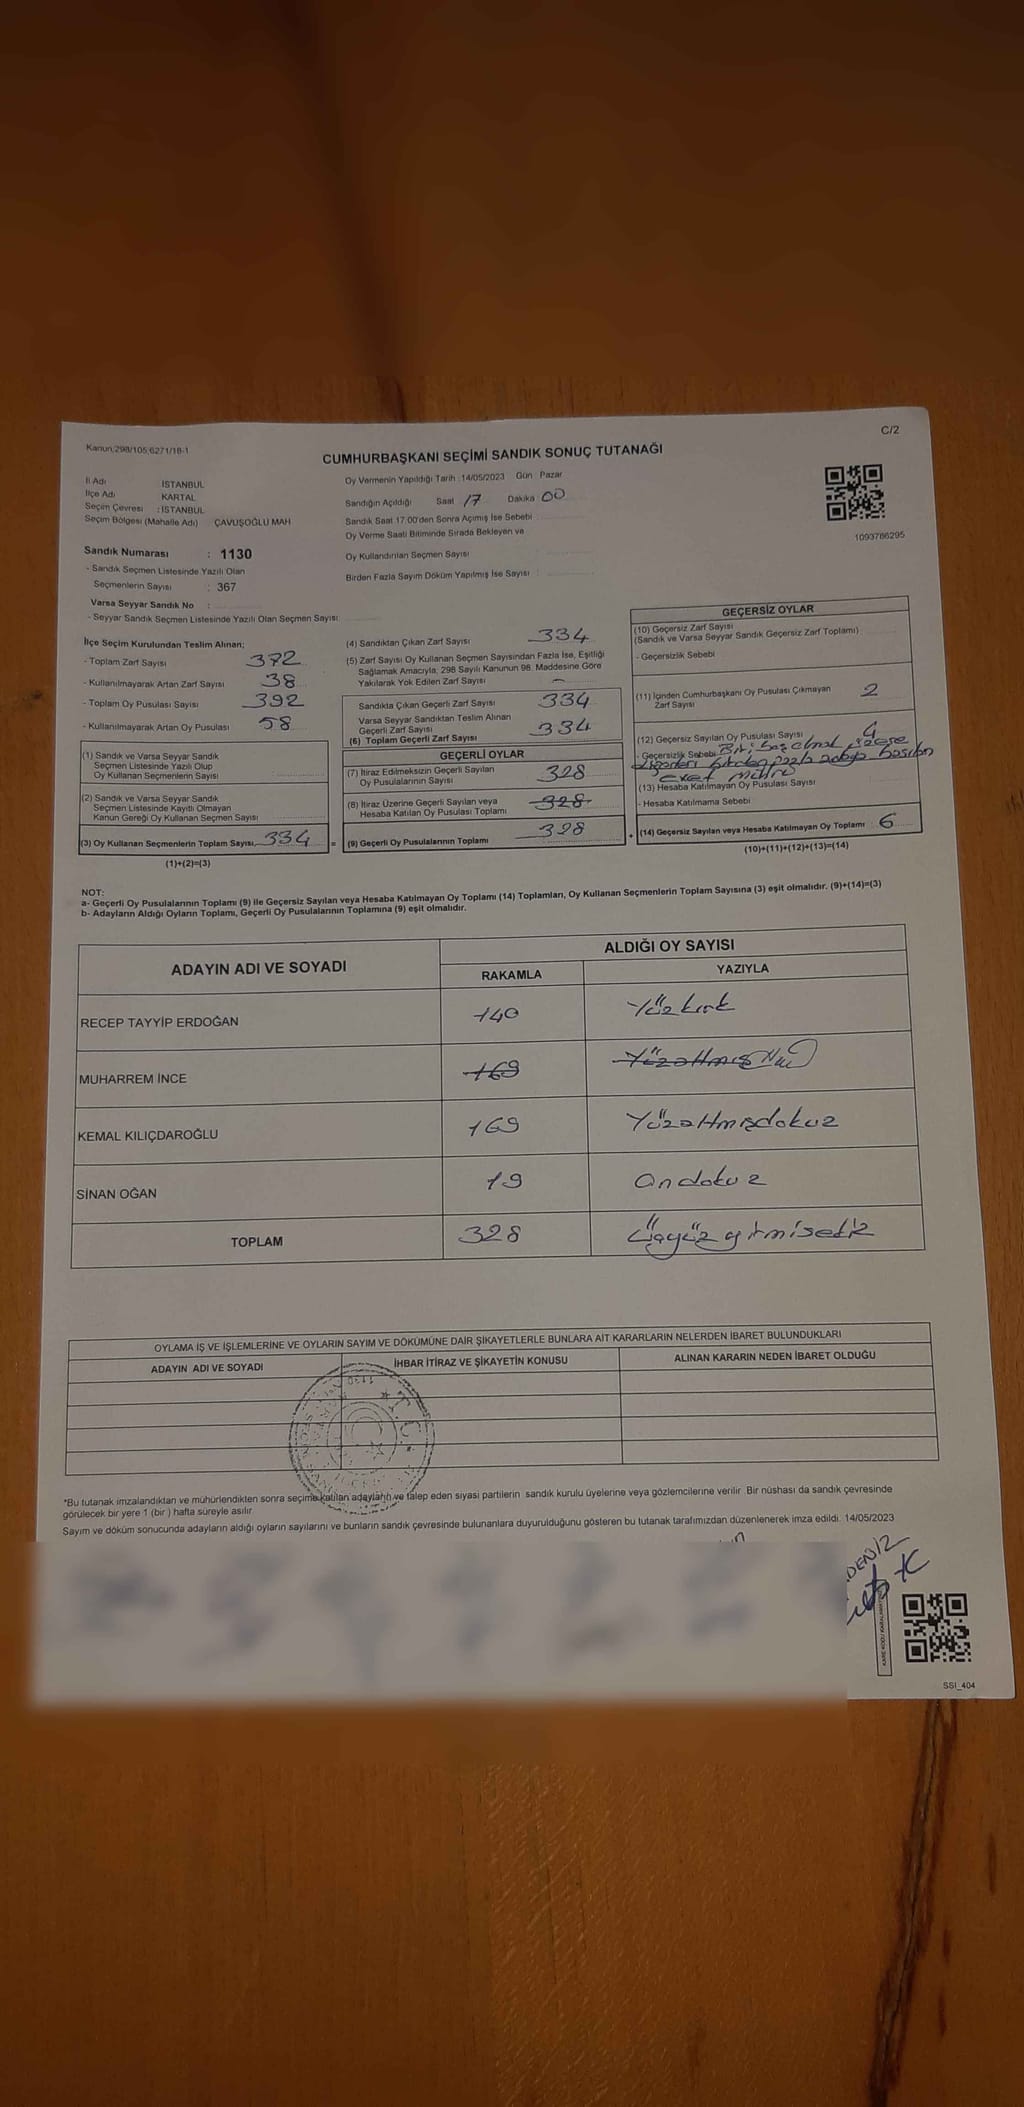 Kanun:298/105,6271/18-1
C/2
CUMHURBAŞKANI SEÇİMİ SANDIK SONUÇ TUTANAĞI
İl Adı İSTANBUL
İlçe Adı KARTAL
Seçim Çevresi : İSTANBUL
Seçim Bölgesi (Mahalle Adı) ÇAVUŞOĞLU MAH
Sandık Numarası : 1130
- Sandık Seçmen Listesinde Yazılı Olan
Seçmenlerin Sayısı : 367
Varsa Seyyar Sandık No :
- Seyyar Sandık Seçmen Listesinde Yazılı Olan Seçmen Sayısı
Oy Vermenin Yapıldığı Tarih :14/05/2023 Gün : Pazar
Sandığın Açıldığı Saat 17 Dakika 00
Sandık Saat 17:00'den Sonra Açımış İse Sebebi
Oy Verme Saati Bitiminde Sırada Bekleyen ve
Oy Kullandırılan Seçmen Sayısı
Birden Fazla Sayım Döküm Yapılmış İse Sayısı :
1093786295
İlçe Seçim Kurulundan Teslim Alınan;
- Toplam Zarf Sayısı 372
- Kullanılmayarak Artan Zarf Sayısı 38
- Toplam Oy Pusulası Sayısı 392
- Kullanılmayarak Artan Oy Pusulası 58
(1) Sandık ve Varsa Seyyar Sandık
Seçmen Listesinde Yazılı Olup
Oy Kullanan Seçmenlerin Sayısı
(2) Sandık ve Varsa Seyyar Sandık
Seçmen Listesinde Kayıtlı Olmayan
Kanun Gereği Oy Kullanan Seçmen Sayısı
(3) Oy Kullanan Seçmenlerin Toplam Sayısı 334 =
(1)+(2)=(3)
(4) Sandıktan Çıkan Zarf Sayısı 334
(5) Zarf Sayısı Oy Kullanan Seçmen Sayısından Fazla İse, Eşitliği
Sağlamak Amacıyla, 298 Sayılı Kanunun 98. Maddesine Göre
Yakılarak Yok Edilen Zarf Sayısı -
Sandıkta Çıkan Geçerli Zarf Sayısı 334
Varsa Seyyar Sandıktan Teslim Alınan
Geçerli Zarf Sayısı 334
(6) Toplam Geçerli Zarf Sayısı
GEÇERLİ OYLAR
(7) İtiraz Edilmeksizin Geçerli Sayılan
Oy Pusulalarının Sayısı 328
(8) İtiraz Üzerine Geçerli Sayılan veya
Hesaba Katılan Oy Pusulası Toplamı 328
(9) Geçerli Oy Pusulalarının Toplamı 328 +
GEÇERSİZ OYLAR
(10) Geçersiz Zarf Sayısı
(Sandık ve Varsa Seyyar Sandık Geçersiz Zarf Toplamı)
- Geçersizlik Sebebi
(11) İçinden Cumhurbaşkanı Oy Pusulası Çıkmayan 2
Zarf Sayısı
(12) Geçersiz Sayılan Oy Pusulası Sayısı 4
- Geçersizlik Sebebi Biri boş olmak üzere
diğerleri birden fazla adaya basılan
evet mührü
(13) Hesaba Katılmayan Oy Pusulası Sayısı
- Hesaba Katılmama Sebebi
(14) Geçersiz Sayılan veya Hesaba Katılmayan Oy Toplamı 6
(10)+(11)+(12)+(13)=(14)
NOT:
a- Geçerli Oy Pusulalarının Toplamı (9) ile Geçersiz Sayılan veya Hesaba Katılmayan Oy Toplamı (14) Toplamları, Oy Kullanan Seçmenlerin Toplam Sayısına (3) eşit olmalıdır. (9)+(14)=(3)
b- Adayların Aldığı Oyların Toplamı, Geçerli Oy Pusulalarının Toplamına (9) eşit olmalıdır.
ADAYIN ADI VE SOYADI ALDIĞI OY SAYISI
RAKAMLA YAZIYLA
RECEP TAYYİP ERDOĞAN 140 Yüzkırk
MUHARREM İNCE 169 Yüzaltmış
KEMAL KILIÇDAROĞLU 169 Yüzaltmışdokuz
SİNAN OĞAN 19 Ondokuz
TOPLAM 328 Üçyüz yirmisekiz
OYLAMA İŞ VE İŞLEMLERİNE VE OYLARIN SAYIM VE DÖKÜMÜNE DAİR ŞİKAYETLERLE BUNLARA AİT KARARLARIN NELERDEN İBARET BULUNDUKLARI
ADAYIN ADI VE SOYADI İHBAR İTİRAZ VE ŞİKAYETİN KONUSU ALINAN KARARIN NEDEN İBARET OLDUĞU
1130
T.C.
*Bu tutanak imzalandıktan ve mühürlendikten sonra seçime katılan adayların ve talep eden siyasi partilerin sandık kurulu üyelerine veya gözlemcilerine verilir. Bir nüshası da sandık çevresinde
görülecek bir yere 1 (bir ) hafta süreyle asılır.
Sayım ve döküm sonucunda adayların aldığı oyların sayılarını ve bunların sandık çevresinde bulunanlara duyurulduğunu gösteren bu tutanak tarafımızdan düzenlenerek imza edildi. 14/05/2023
DENİZ
SSI_404